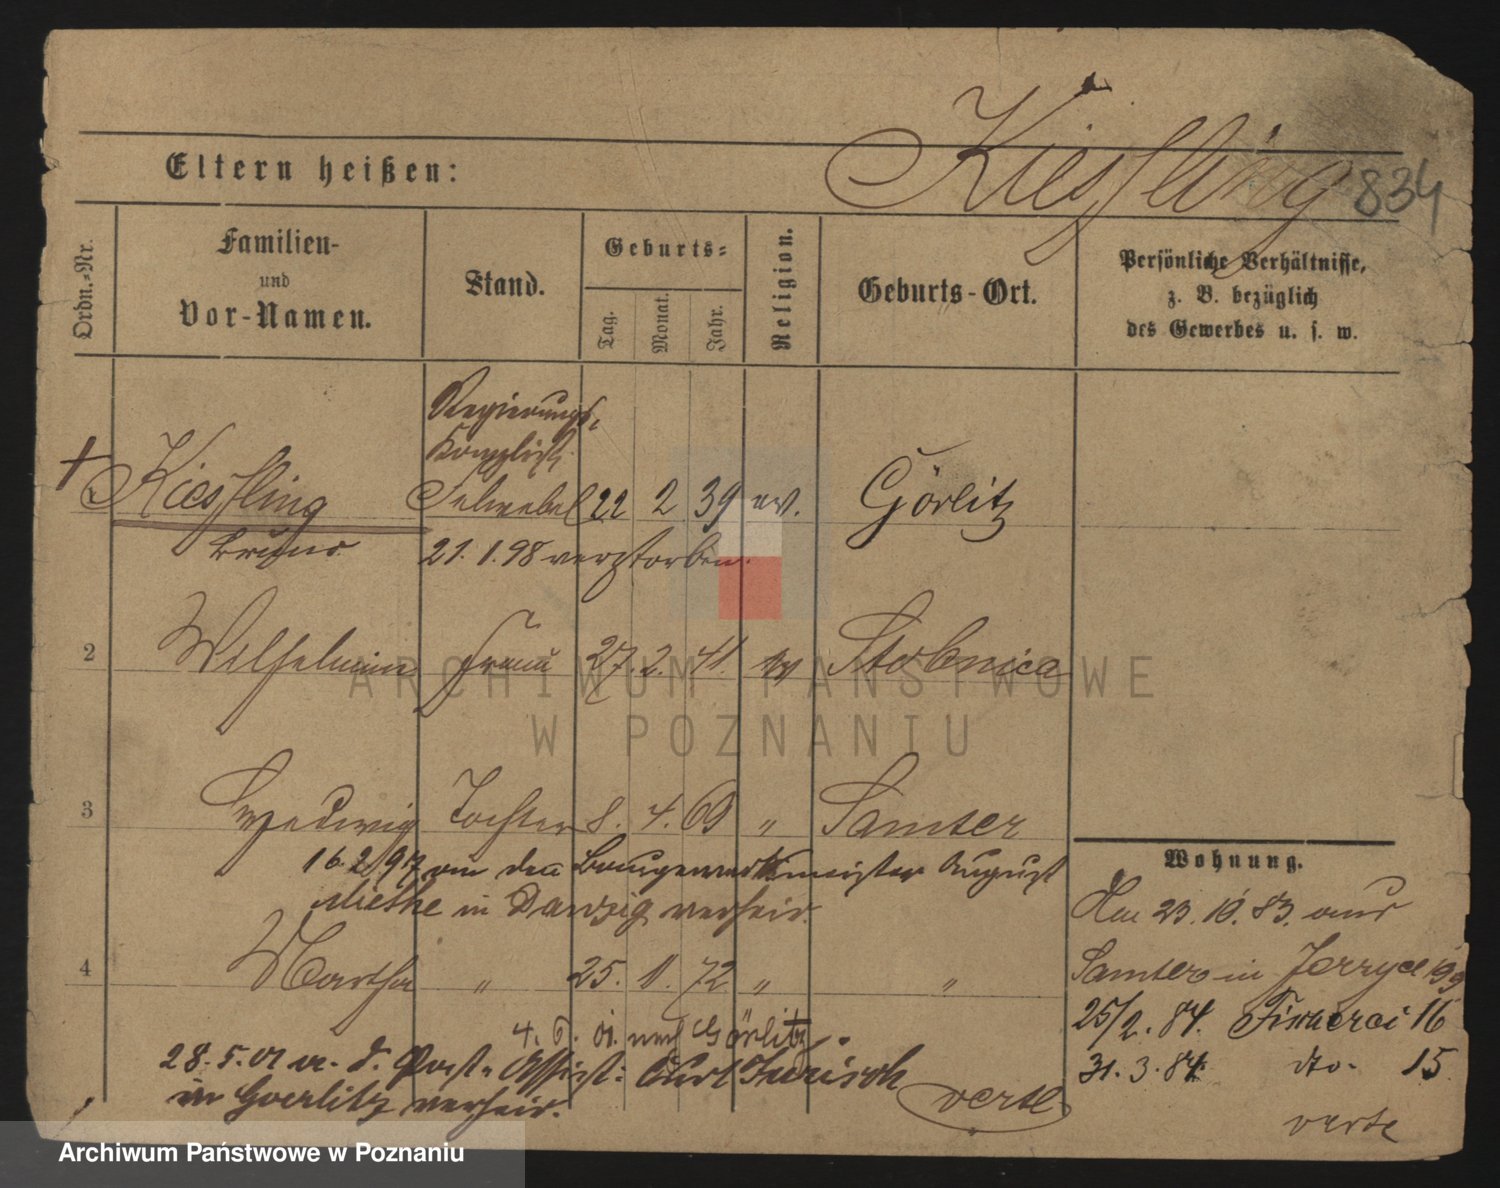 Kiesſling 834
Eltern heißen:
Ordn.-Nr.
Familien-
und
Vor-Namen.
Stand.
Geburts-
Tag.
Monat.
Jahr.
Religion.
Geburts-Ort.
Persönliche Verhältnisse,
z. B. bezüglich
des Gewerbes u. s. w.
Regierungs-
Kanzlist
1 Kiesſling Felwebel 22 2 39 ev. Görlitz
Bruno 21.1.98 verstorben.
2 Wilhelmine Frau 27. 2. 41. ev Stobnica
3 Hedwig Tochter 8. 4. 69 " Samter
16 2 97 an den Baugewerksmeister August
Miethe in Danzig verheir.
4 Martha " 25. 11. 72 " "
4. 6. 01. nach Görlitz
28.5.01 a. d. Post-Assist. Curt
in Goerlitz verheir.
verte
Wohnung.
Am 23.10.83. aus
Samter in Jerzyce 199
25/2. 84. Fischerei 16
31. 3. 84. dto. 15
verte
ARCHIWUM PAŃSTWOWE
W POZNANIU
Archiwum Państwowe w Poznaniu